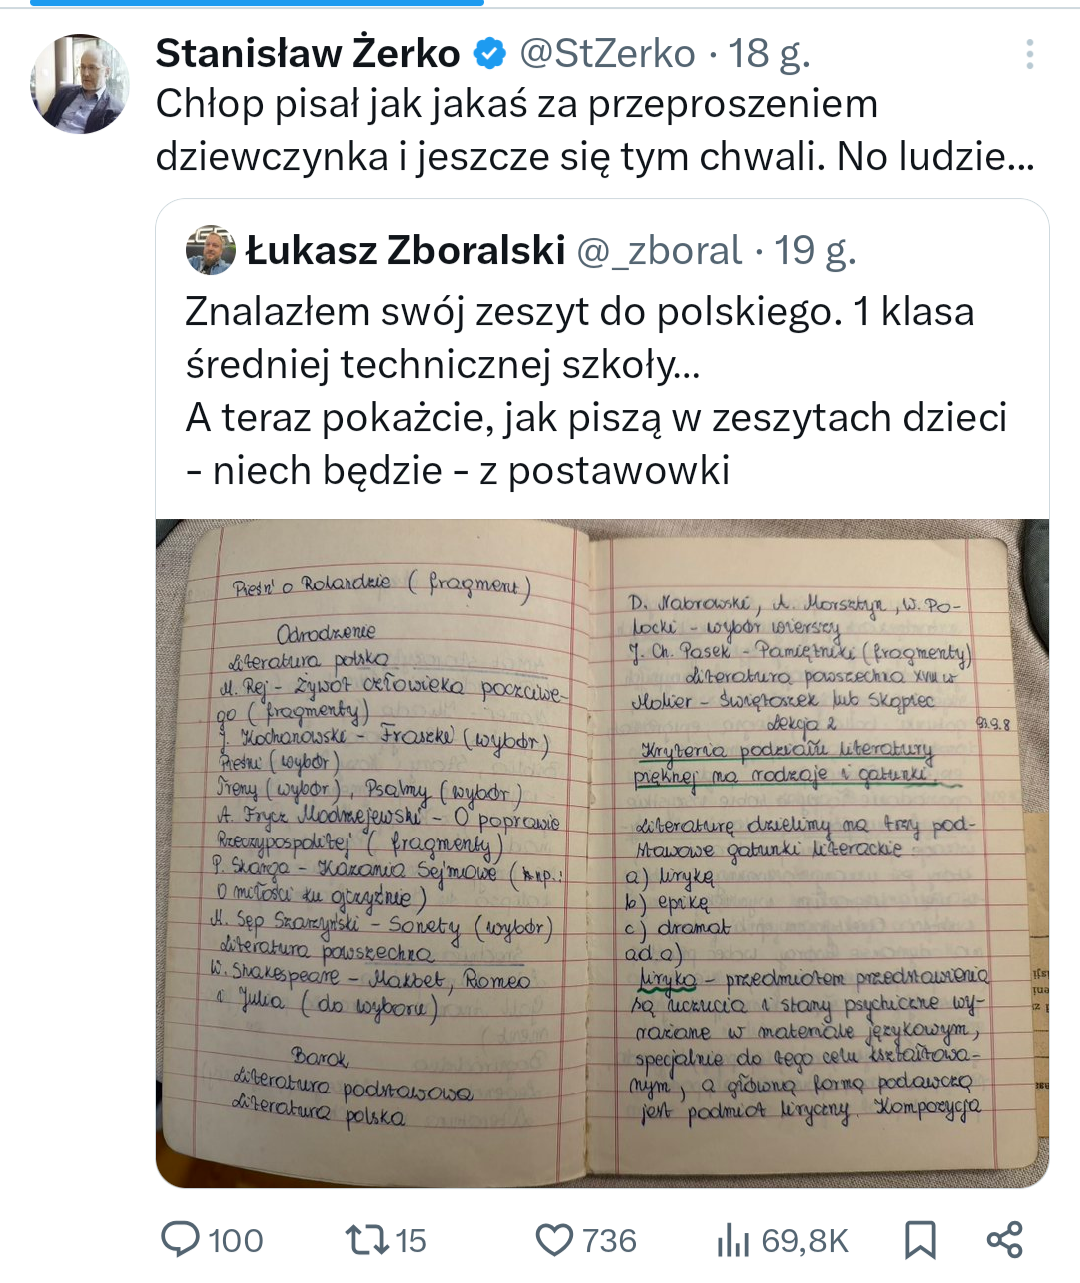 Stanisław Żerko @StZerko · 18 g.
Chłop pisał jak jakaś za przeproszeniem
dziewczynka i jeszcze się tym chwali. No ludzie...
Łukasz Zboralski @_zboral · 19 g.
Znalazłem swój zeszyt do polskiego. 1 klasa
średniej technicznej szkoły...
A teraz pokażcie, jak piszą w zeszytach dzieci
- niech będzie - z postawowki
Pieśń o Rolandzie (fragment)
Odrodzenie
Literatura polska
M. Rej - Żywot człowieka poczciwe-
go (fragmenty)
J. Kochanowski - Fraszki (wybór)
Pieśni (wybór)
Treny (wybór), Psalmy (wybór)
A. Frycz Modrzejewski - O poprawie
Rzeczypospolitej (fragmenty)
P. Skarga - Kazania Sejmowe (np.:
O miłości ku ojczyźnie)
M. Sęp Szarzyński - Sonety (wybór)
Literatura powszechna
W. Shakespeare - Makbet, Romeo
i Julia (do wyboru)
Barok
Literatura podstawowa
Literatura polska
D. Nabrowski, A. Morsztyn, W. Po-
tocki - wybór wierszy
J. Ch. Pasek - Pamiętniki (fragmenty)
Literatura powszechna XVII w
Molier - Świętoszek lub Skąpiec
Lekcja 2
Kryteria podziału literatury
pięknej na rodzaje i gatunki
Literaturę dzielimy na trzy pod-
stawowe gatunki literackie
a) lirykę
b) epikę
c) dramat
ad a)
Liryka - przedmiotem przedstawienia
są uczucia i stany psychiczne wy-
rażane w materiale językowym,
specjalnie do tego celu kształtowa-
nym, a główną formą podawczą
jest podmiot liryczny. Kompozycja
100 15 736 69,8K